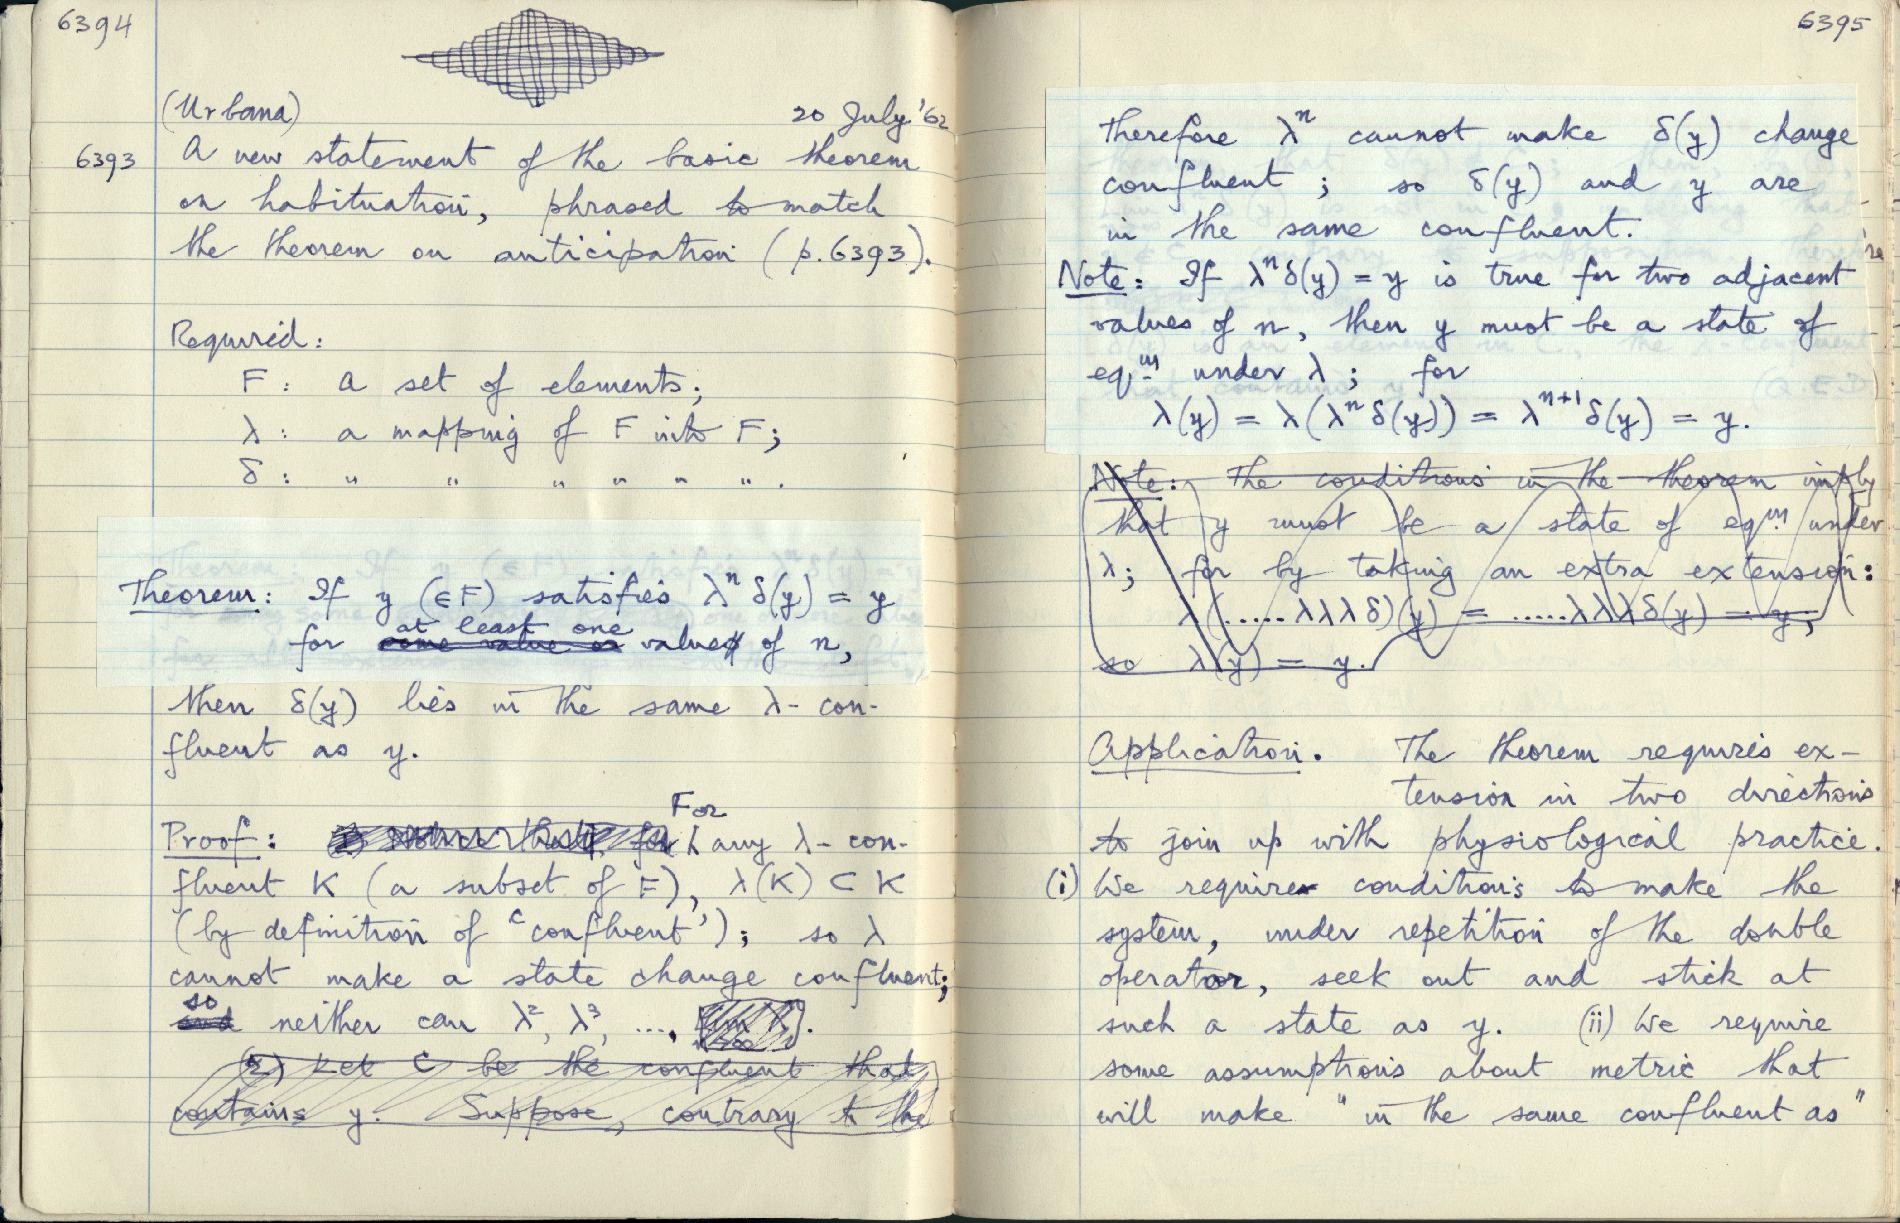 6394
(Urbana) 20 July '62
6393 A new statement of the basic theorem
on habituation, phrased to match
the theorem on anticipation (p.6393).
Required:
F: a set of elements;
λ: a mapping of F into F;
δ: " " " " " " .
Theorem: If y (∈F) satisfies λⁿδ(y) = y
at least one
for some value or values of n,
then δ(y) lies in the same λ-con-
fluent as y.
For
Proof: any λ-con-
fluent K (a subset of F), λ(K) ⊂ K
(by definition of 'confluent'); so λ
cannot make a state change confluent;
so
and neither can λ², λ³, ....,
(2) Let C be the confluent that
contains y. Suppose, contrary to the
6395
Therefore λⁿ cannot make δ(y) change
confluent; so δ(y) and y are
in the same confluent.
Note: If λⁿδ(y) = y is true for two adjacent
values of n, then y must be a state of
eqᵐ under λ; for
λ(y) = λ(λⁿδ(y)) = λⁿ⁺¹δ(y) = y.
Note: The conditions in the theorem imply
that y must be a state of eqᵐ under
λ; for by taking an extra extension:
λ(.....λλλδ)(y) = .....λλλδ(y) = y,
so λ(y) = y.
Application. The theorem requires ex-
tension in two directions
to join up with physiological practice.
(i) We require conditions to make the
system, under repetition of the double
operator, seek out and stick at
such a state as y. (ii) We require
some assumptions about metric that
will make "in the same confluent as"